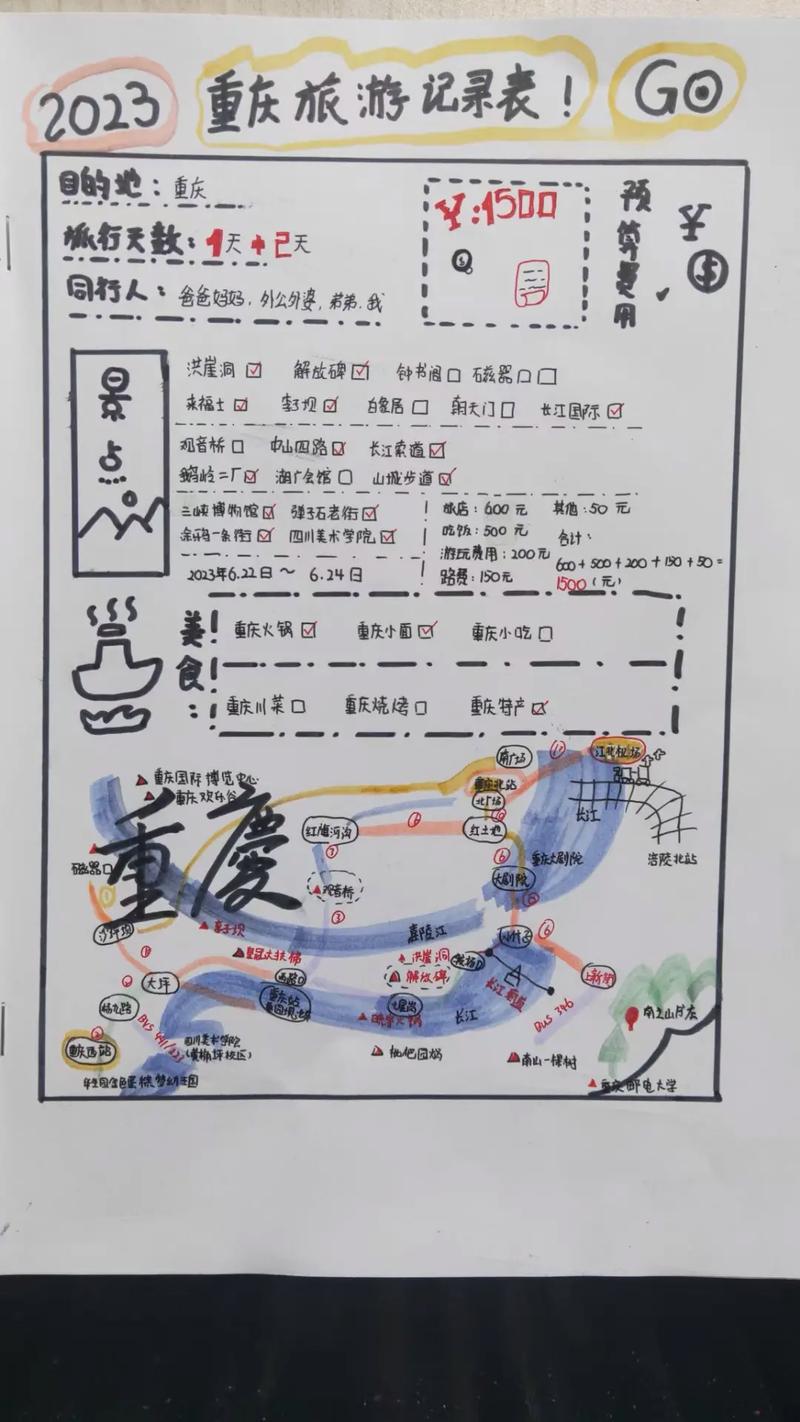 2023 重庆旅游记录表！ GO
目的地：重庆
旅行天数：1天+2天
同行人：爸爸妈妈，外公外婆，弟弟.我
¥:1500
预算费用 ¥ $
景点
洪崖洞☑ 解放碑☑ 钟书阁□ 磁器口□
来福士☑ 李子坝☑ 白象居□ 朝天门□ 长江国际☑
观音桥□ 中山四路☑ 长江索道☑
鹅岭二厂☑ 湖广会馆□ 山城步道☑
三峡博物馆☑ 弹子石老街☑
涂鸦一条街☑ 四川美术学院☑
2023年6.22日～ 6.24日
旅店：600元 其他：50元
吃饭：500元 合计：
游玩费用：200元 600+500+200+150+50=
路费：150元 1500(元)
美食：
重庆火锅☑ 重庆小面☑ 重庆小吃□
重庆川菜□ 重庆烧烤□ 重庆特产☑
南广场
江北机场
重庆国际博览中心
重庆欢乐谷
重庆北站
北广场
长江
重慶
红旗河沟
红土地
涪陵北站
磁器口
观音桥
③
⑥
大剧院
重庆大剧院
沙坪坝
李子坝
嘉陵江
小什子
⑥
皇冠大扶梯
洪崖洞
解放碑
上新街
大坪
两路口
长江索道
重庆站
七星岗
长江
杨九路
BUS 346
南山一棵树
枇杷园火锅
四川美术学院
(黄桷坪校区)
重庆西站
重庆邮电大学